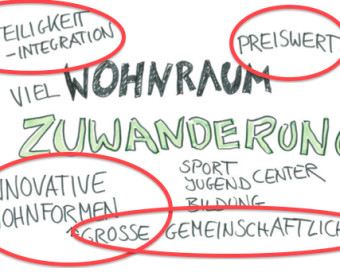 TEILIGKEIT
-INTEGRATION
PREISWERT
VIEL WOHNRAUM
ZUWANDERUNG
NNOVATIVE
OHNFORMEN
SPORT
JUGENDCENTER
BILDUNG
GROSSE GEMEINSCHAFTLICH